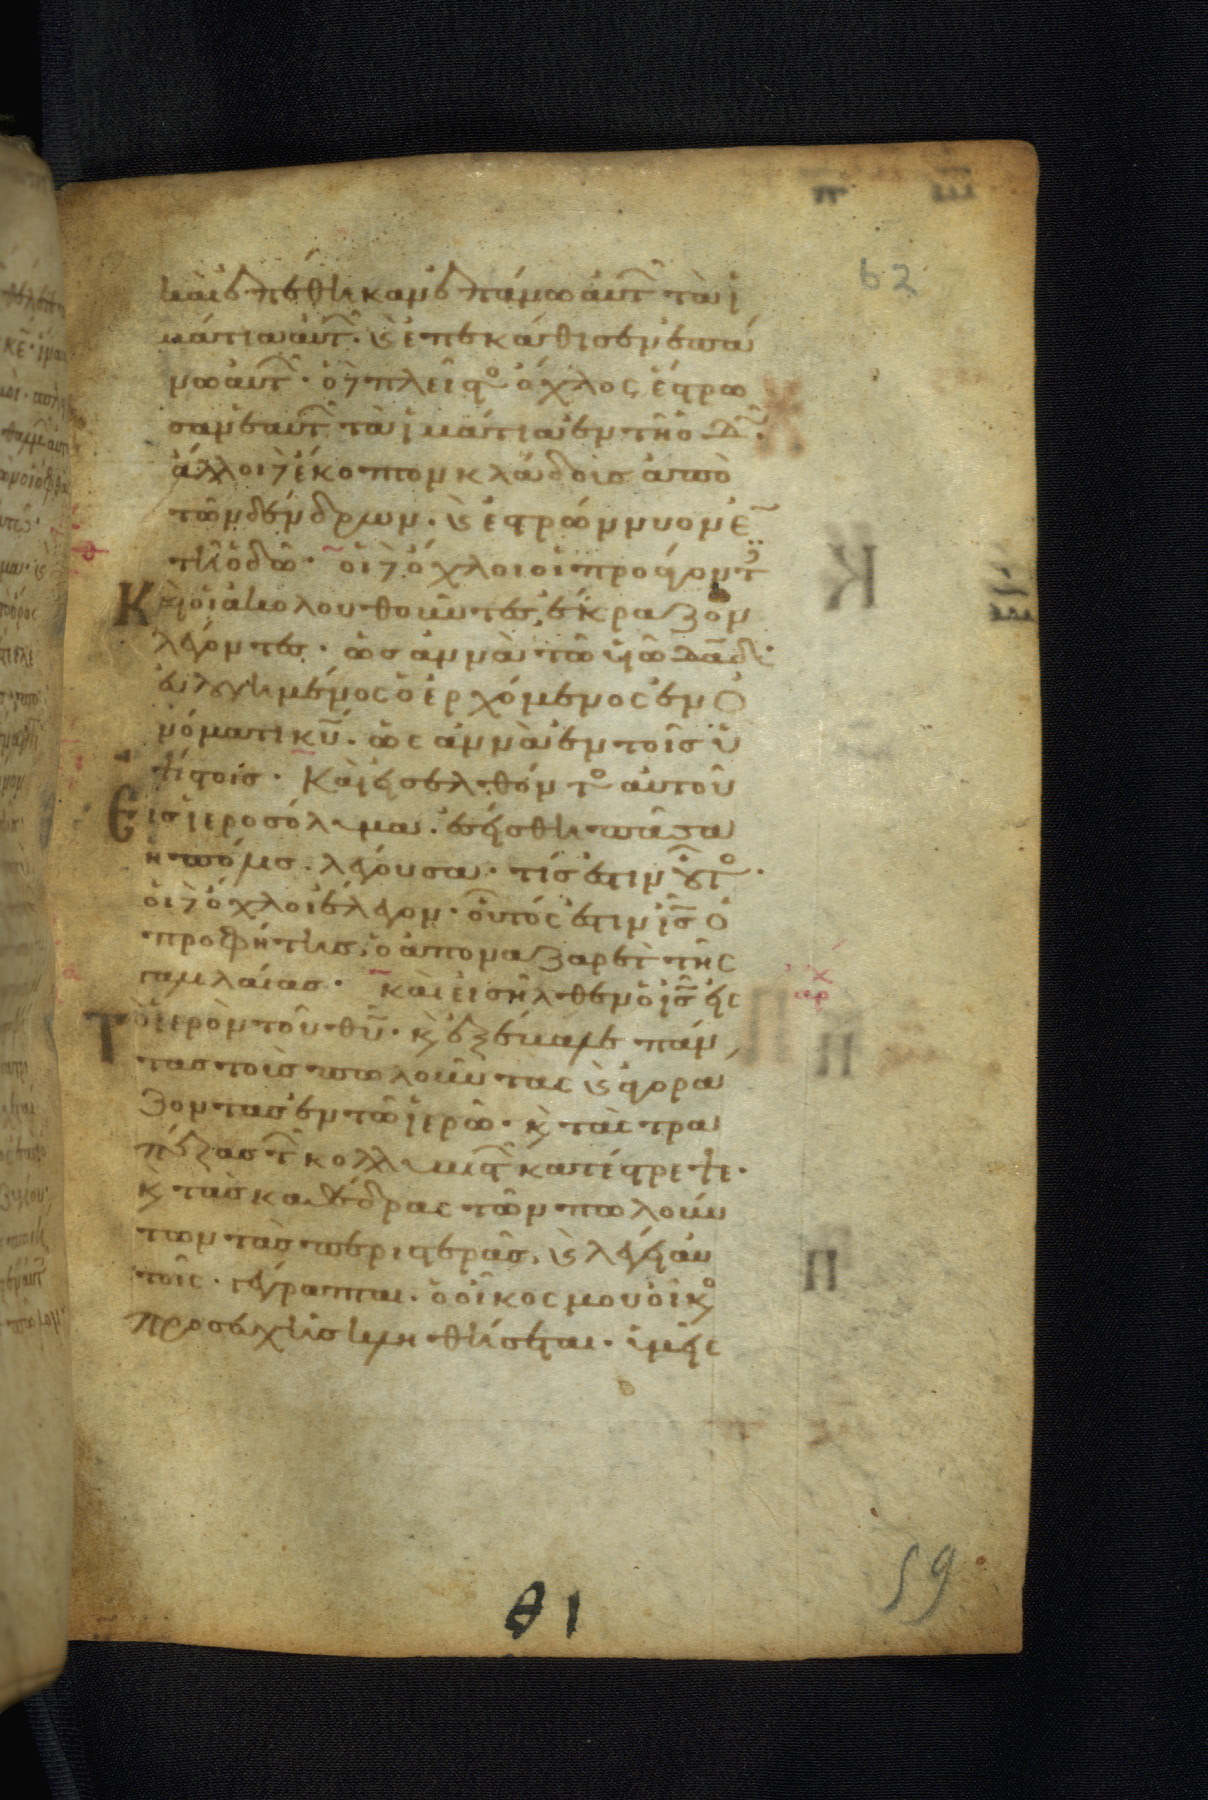 καὶ ἐπέθηκαν ἐπάνω αὐτ̑ τὰ ἱ
μάτια αὐτ̑. ϗ ἐπεκάθισεν ἐπά
νω αὐτ̑. ὁ δὲ πλεῖστο ὄχλος ἔστρω
σαν ἑαυτ̑ τὰ ἱμάτια ἐν τῆ ὁδῶ.
ἄλλοι δὲ ἔκοπτον κλάδοις ἀπὸ
τῶν δένδρων. ϗ ἐστρώννυον ἐ̅
τῆ ὁδῶ. οἱ δὲ ὄχλοι οἱ προάγοντ
Καὶ οἱ ἀκολουθοῦντες, ἔκραζον
λέγοντες. ὡσαννὰ τῶ υἱῶ δᾱδ
εὐλογημένος ὁ ἐρχόμενος ἐν ὀ
νόματι κ̅υ̅. ὡσαννὰ ἐν τοῖς ὑ
ψίστοις. Καὶ εἰσελθόντο αὐτοῦ
Εἰς ἱεροσόλυμα. ἐσείσθη πᾶσα
ἡ πόλις. λέγουσα. τίς ἐστιν οὗτο.
οἱ δὲ ὄχλοι ἔλεγον. οὗτός ἐστιν ι̅ς̅ ὁ
προφήτης, ὁ ἀπὸ ναζαρὲτ τῆς
γαλιλαίας. καὶ εἰσῆλθεν ὁ ι̅ς̅ εἰς
Τὸ ἱερὸν τοῦ θ̅υ̅. ϗ ἐξέβαλε πάν
τας τοὺς πωλοῦντας ϗ ἀγορά
ζοντας ἐν τῶ ἱερῶ. ϗ τὰς τρα
πέζας τ̑ κολλυβιστ̑ κατέστρεψε.
ϗ τὰς καθέδρας τῶν πωλούν
των τὰς περιστερὰς. ϗ λέγει αὐ
τοῖς. γέγραπται. ὁ οἶκος μου οἶκο
προσευχῆς κληθήσεται. ὑμεῖς
62
59